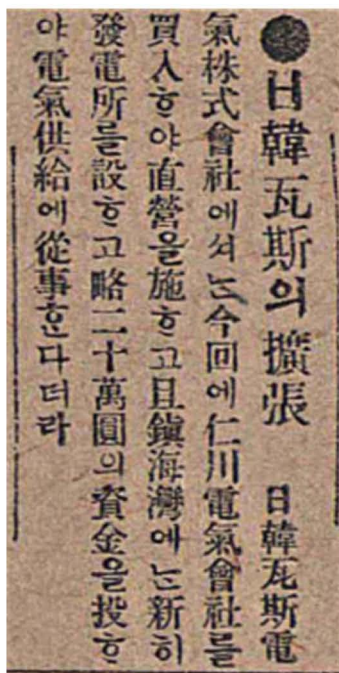 ●日韓瓦斯의擴張 日韓瓦斯電
氣株式會社에셔ᄂᆞᆫ今回에仁川電氣會社를
買入ᄒᆞ야直營을施ᄒᆞ고且鎭海灣에ᄂᆞᆫ新히
發電所를設ᄒᆞ고略二十萬圓의資金을投ᄒᆞ
야電氣供給에從事ᄒᆞᆫ다더라